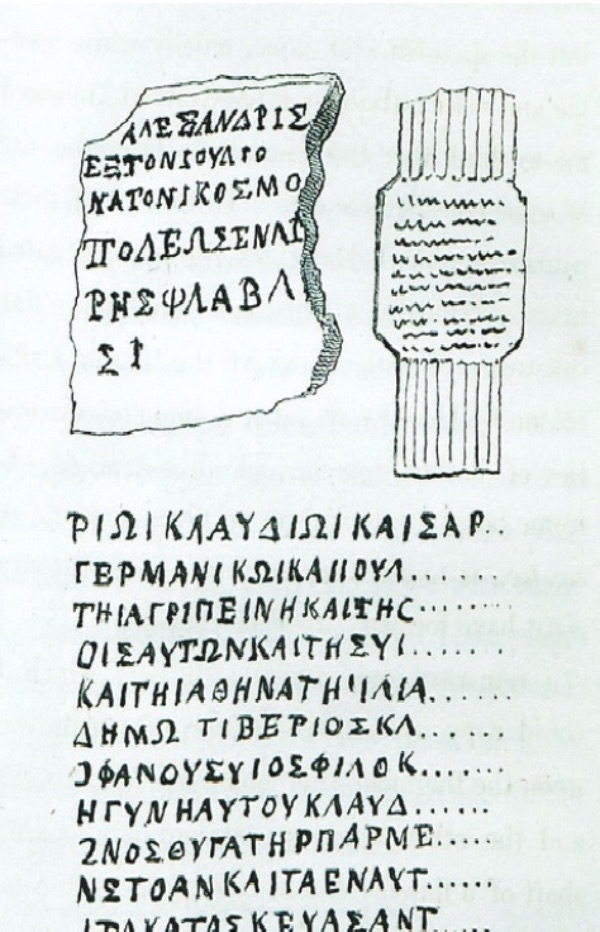 ΑΛΕΞΑΝΔΡΙΣ
ΕΞΤΟΝΙΟΥΛΙΟ
ΝΑΤΟΝΙΚΟΣΜΟ
ΠΟΛΕΩΣΕΝΑΙ
ΡΗΣΦΛΑΒΛ
ΣΙ
ΡΙΩΙΚΛΑΥΔΙΩΙΚΑΙΣΑΡ.
ΓΕΡΜΑΝΙΚΩΙΚΑΙΙΟΥΛ........
ΤΗΙΑΓΡΙΠΕΙΝΗΚΑΙΤΗΣ........
ΟΙΣΑΥΤΩΝΚΑΙΤΗΣΥΙ........
ΚΑΙΤΗΙΑΘΗΝΑΤΗΙΙΛΙΑ.......
ΔΗΜΩ ΤΙΒΕΡΙΟΣΚΛ.......
ΟΦΑΝΟΥΣΥΙΟΣΦΙΛΟΚ......
ΗΓΥΝΗΑΥΤΟΥΚΛΑΥΔ......
ΝΟΣΘΥΓΑΤΗΡΠΑΡΜΕ.....
ΝΣΤΟΑΝΚΑΙΤΑΕΝΑΥΤ......
ΚΑΤΑΣΚΕΥΑΣΑΝΤ